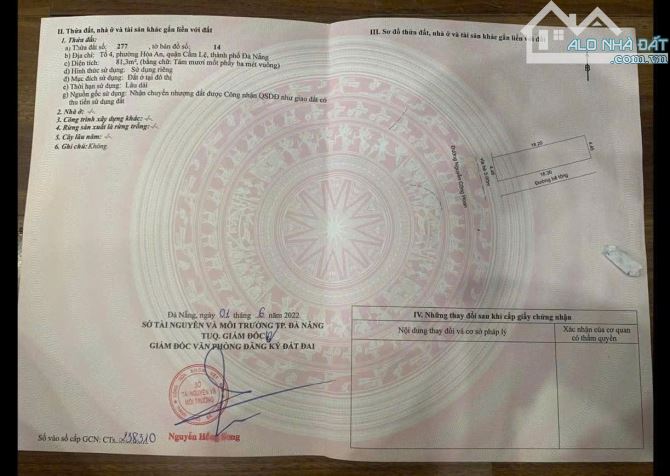 ALO NHÀ ĐẤT
II. Thửa đất, nhà ở và tài sản khác gắn liền với đất
1. Thửa đất:
a) Thửa đất số: 277 , tờ bản đồ số: 14
b) Địa chỉ: Tổ 4, phường Hòa An, quận Cẩm Lệ, thành phố Đà Nẵng
c) Diện tích: 81,3m², (bằng chữ: Tám mươi mốt phẩy ba mét vuông)
d) Hình thức sử dụng: Sử dụng riêng
đ) Mục đích sử dụng: Đất ở tại đô thị
e) Thời hạn sử dụng: Lâu dài
g) Nguồn gốc sử dụng: Nhận chuyển nhượng đất được Công nhận QSDĐ như giao đất có
thu tiền sử dụng đất
2. Nhà ở: -/-
3. Công trình xây dựng khác: -/-
4. Rừng sản xuất là rừng trồng: -/-
5. Cây lâu năm: -/-
6. Ghi chú: Không.
Đà Nẵng, ngày 01 tháng 6 năm 2022
SỞ TÀI NGUYÊN VÀ MÔI TRƯỜNG TP. ĐÀ NẴNG
TUQ. GIÁM ĐỐC
GIÁM ĐỐC VĂN PHÒNG ĐĂNG KÝ ĐẤT ĐAI
SỞ
TÀI NGUYÊN VÀ
MÔI TRƯỜNG
Nguyễn Hồng Song
Số vào sổ cấp GCN: CTs
III. Sơ đồ thửa đất, nhà ở và tài sản khác gắn liền với đất
B
18.20
4.45
4.45
18.30
Đường bê tông
Đường Nguyễn Công Hoan
IV. Những thay đổi sau khi cấp giấy chứng nhận
Nội dung thay đổi và cơ sở pháp lý
Xác nhận của cơ quan
có thẩm quyền